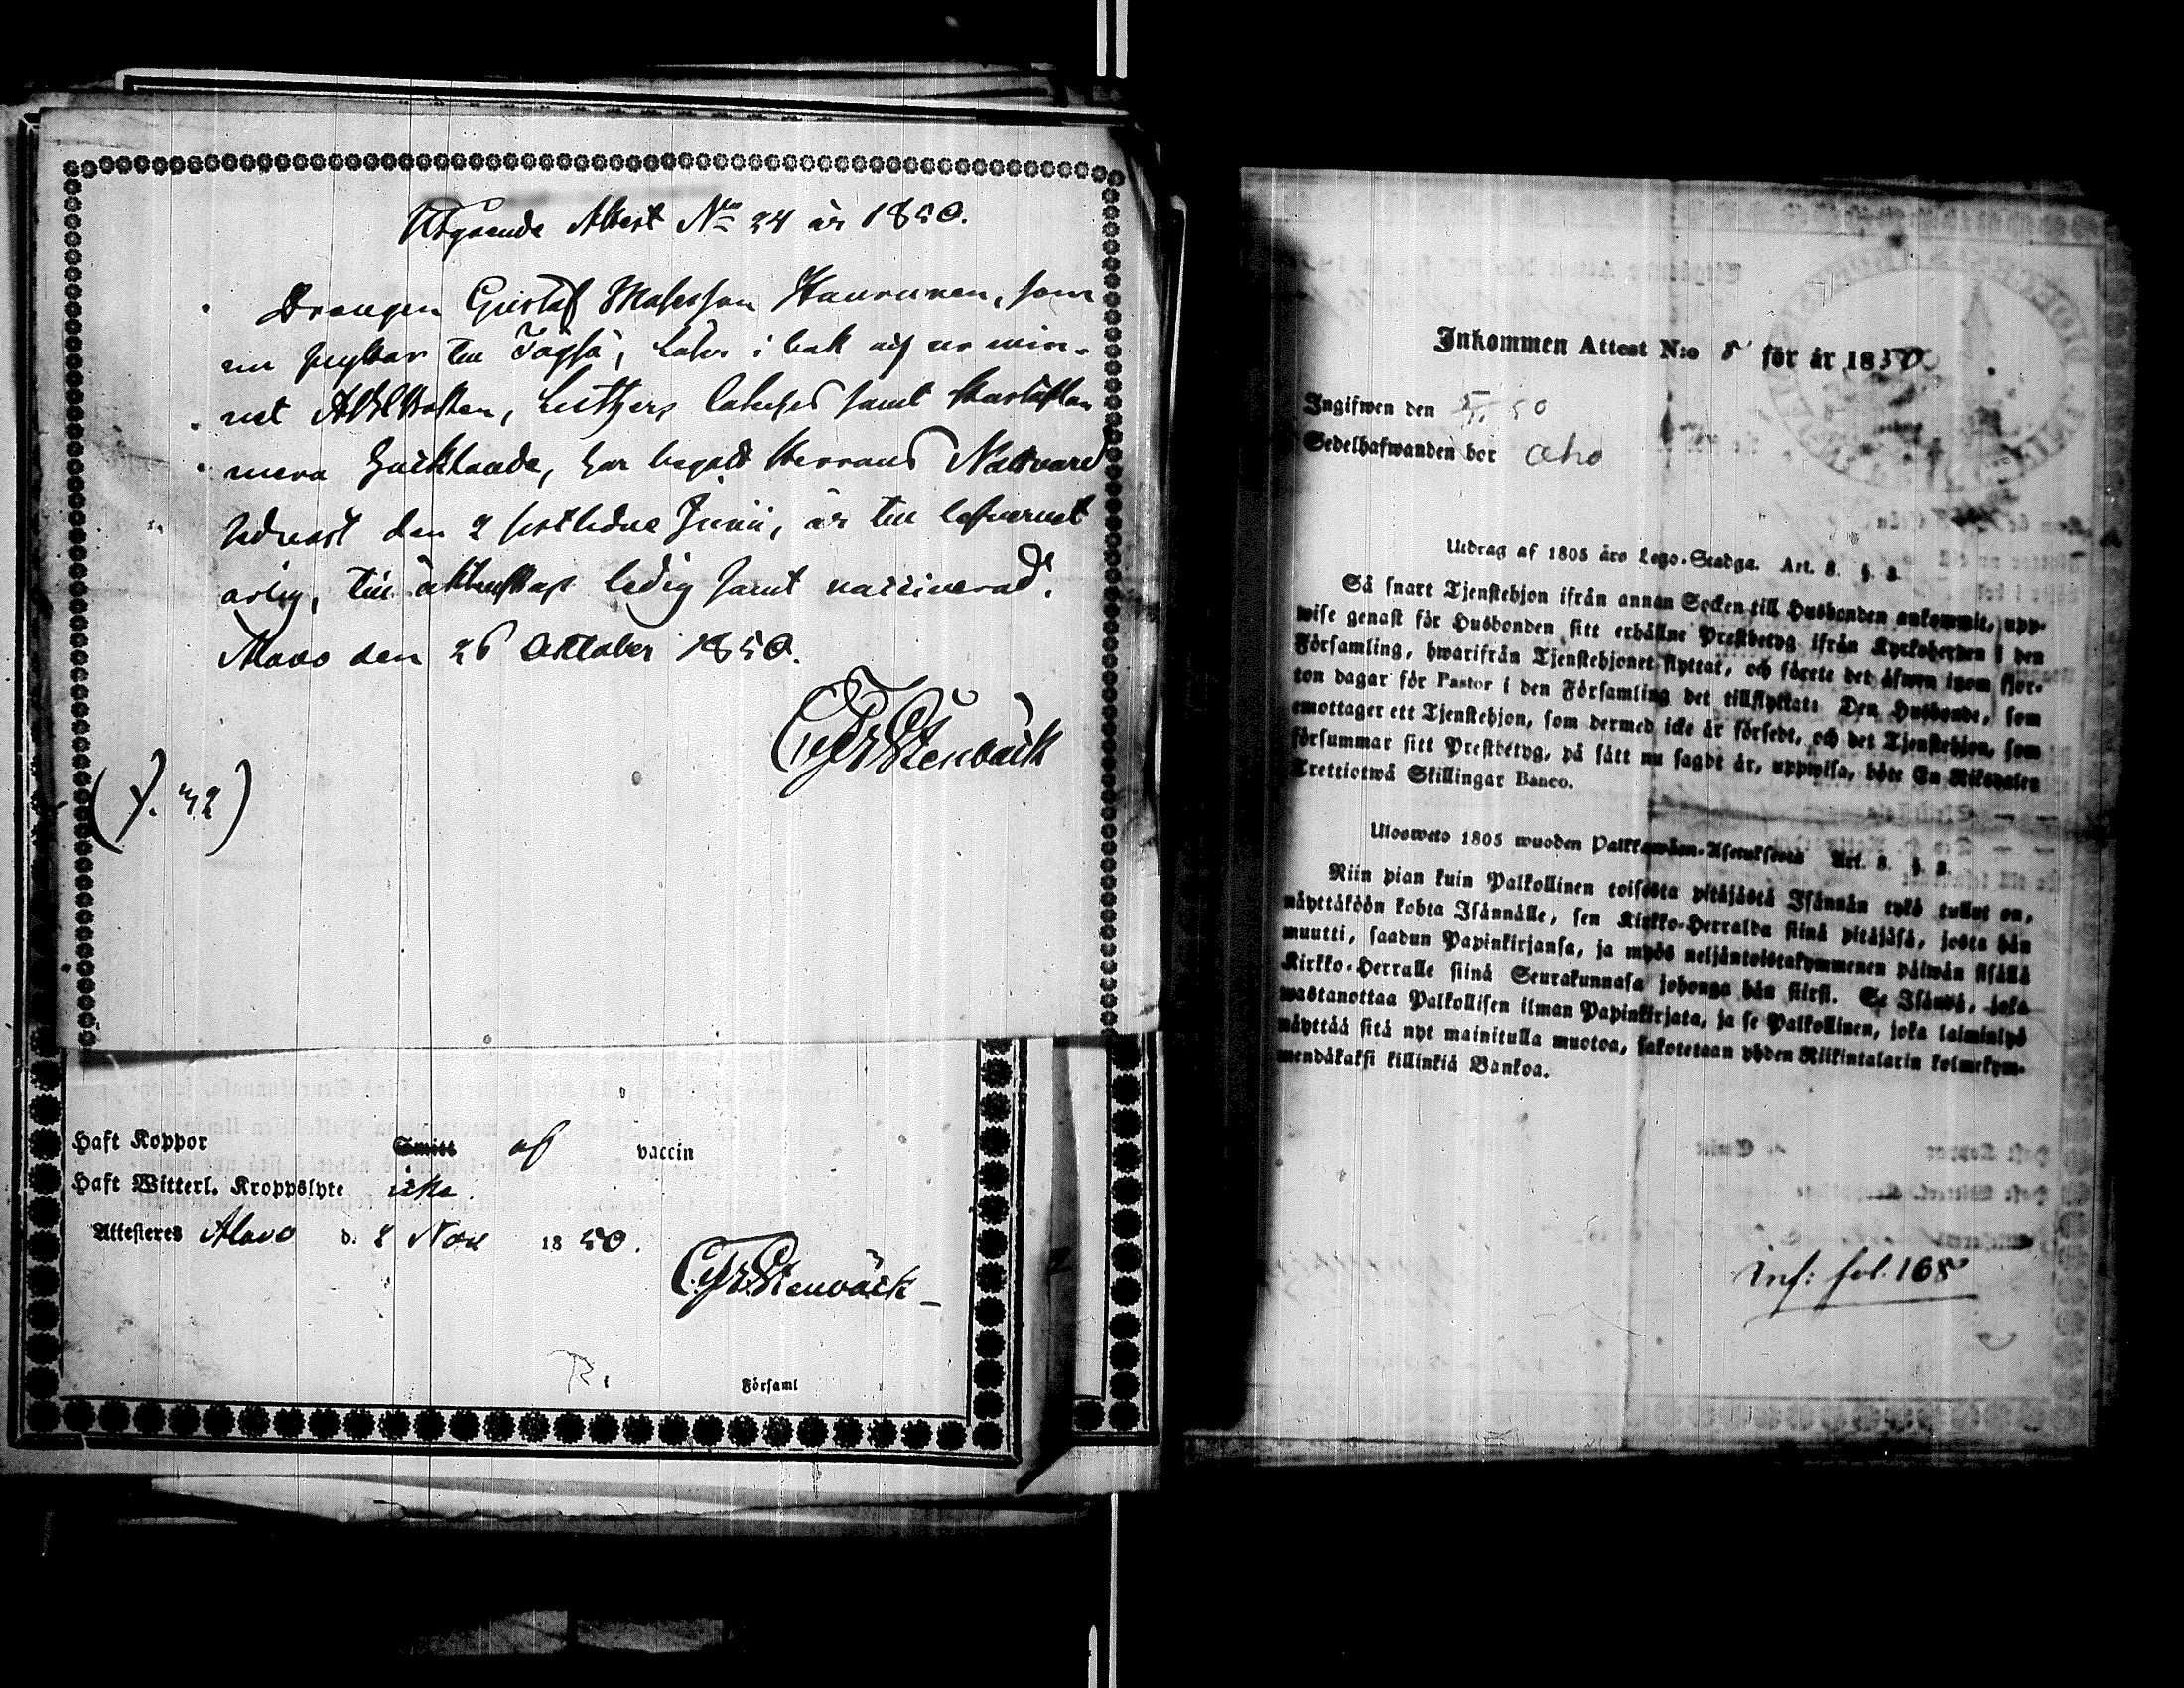 Utgående Attest No 24 år 1850.
Drengen Gustaf Matsson Haurunen, som
nu flyttar till Töysä, läser i bok och ur min-
net Abcboken, Luthers Cateches samt
mera Hacklande, har begått Herrans Nattvard
sednast den 2 sistledne Junii, är till lefvernet
ärlig, till äktenskap ledig samt vaccinerad.
Alavo den 26 October 1850.
C Fr Stenbäck
(p. 42)
Haft Koppor Smitt af vaccin
Haft Witterl. Kroppslyte icke
Attesteres Alavo d. 8 Nov 1850.
C. Fr. Stenbäck
Församl
Inkommen Attest N:o 8 för år 1850
Ingifwen den 50
Sedelhafwanden bor Aho
Utdrag af 1805 års Lego-Stadga. Art. 8. §. 3.
Så snart Tjenstehjon ifrån annan Socken till Husbonden ankommit, upp-
wise genast för Husbonden sitt erhållne Prestbetyg ifrån Kyrkoherden i den
Församling, hwarifrån Tjenstehjonet flyttat, och förete det äfwen inom fjor-
ton dagar för Pastor i den Församling det tillflyttat. Den Husbonde, som
emottager ett Tjenstehjon, som dermed icke är försedt, och det Tjenstehjon, som
försummar sitt Prestbetyg, på sätt nu sagdt är, uppwisa, böte En Riksdaler
Trettiotwå Skillingar Banco.
Ulosweto 1805 wuoden Palkkawäen-Asetuksesta Art. 8. §. 3.
Niin pian kuin Palkollinen toisesta pitäjästä Isännän tykö tullut on,
näyttäköön kohta Isännälle, sen Kirkko-Herralda siinä pitäjäsä, josta hän
muutti, saadun Papinkirjansa, ja myös neljäntoistakymmenen päiwän sisällä
Kirkko-Herralle siinä Seurakunnasa johonga hän siirsi. Se Isändä, joka
wastanottaa Palkollisen ilman Papinkirjata, ja se Palkollinen, joka laiminlyö
näyttää sitä nyt mainitulla muotoa, sakotetaan yhden Riikintalarin kolmekym-
mendäkaksi killinkiä Bankoa.
inf: fol. 168